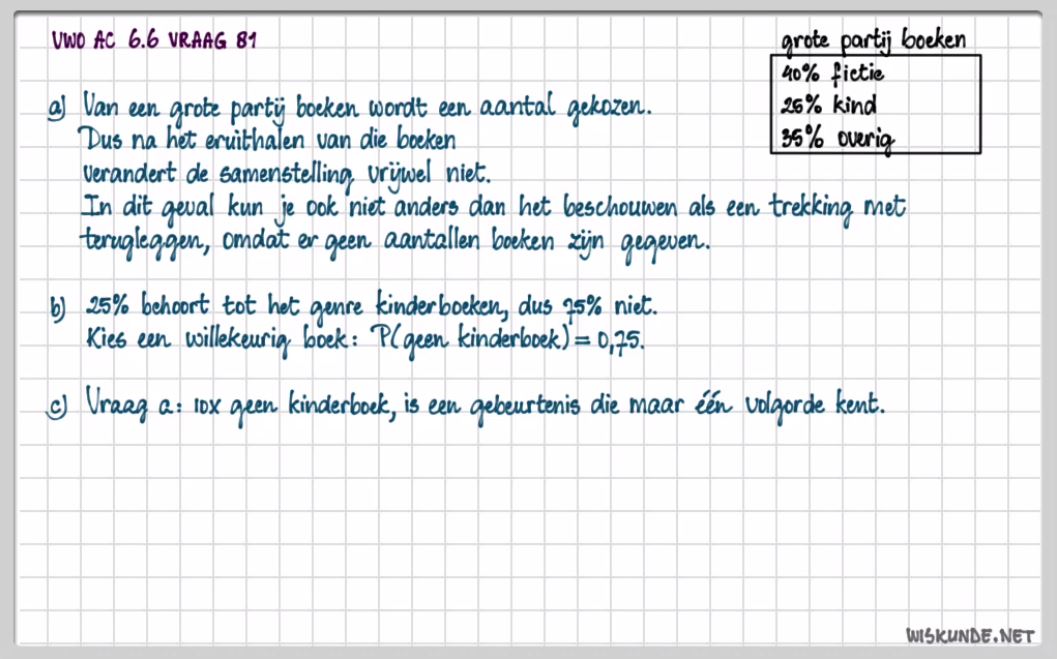 VWO AC 6.6 VRAAG 81
grote partij boeken
40% fictie
25% kind
35% overig
a) Van een grote partij boeken wordt een aantal gekozen.
Dus na het eruithalen van die boeken
verandert de samenstelling vrijwel niet.
In dit geval kun je ook niet anders dan het beschouwen als een trekking met
terugleggen, omdat er geen aantallen boeken zijn gegeven.
b) 25% behoort tot het genre kinderboeken, dus 75% niet.
Kies een willekeurig boek: P(geen kinderboek) = 0,75.
c) Vraag a: 10x geen kinderboek, is een gebeurtenis die maar één volgorde kent.
WISKUNDE.NET